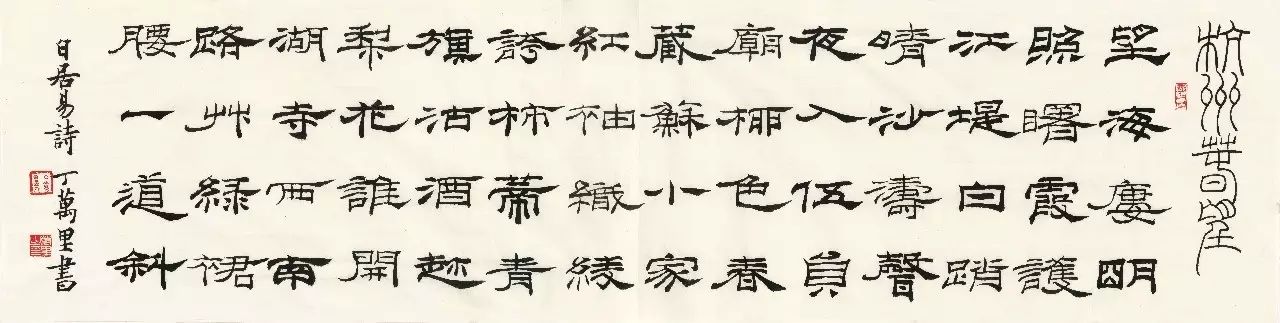 杭州春望
望海廔明
照曙霞護
江堤白踏
晴沙濤聲
夜入伍員
廟柳色春
藏蘇小家
紅袖織綾
誇柿蒂青
旗沽酒趁
梨花誰開
湖寺西南
路艸緑裙
腰一道斜
白居易詩 丁萬里書